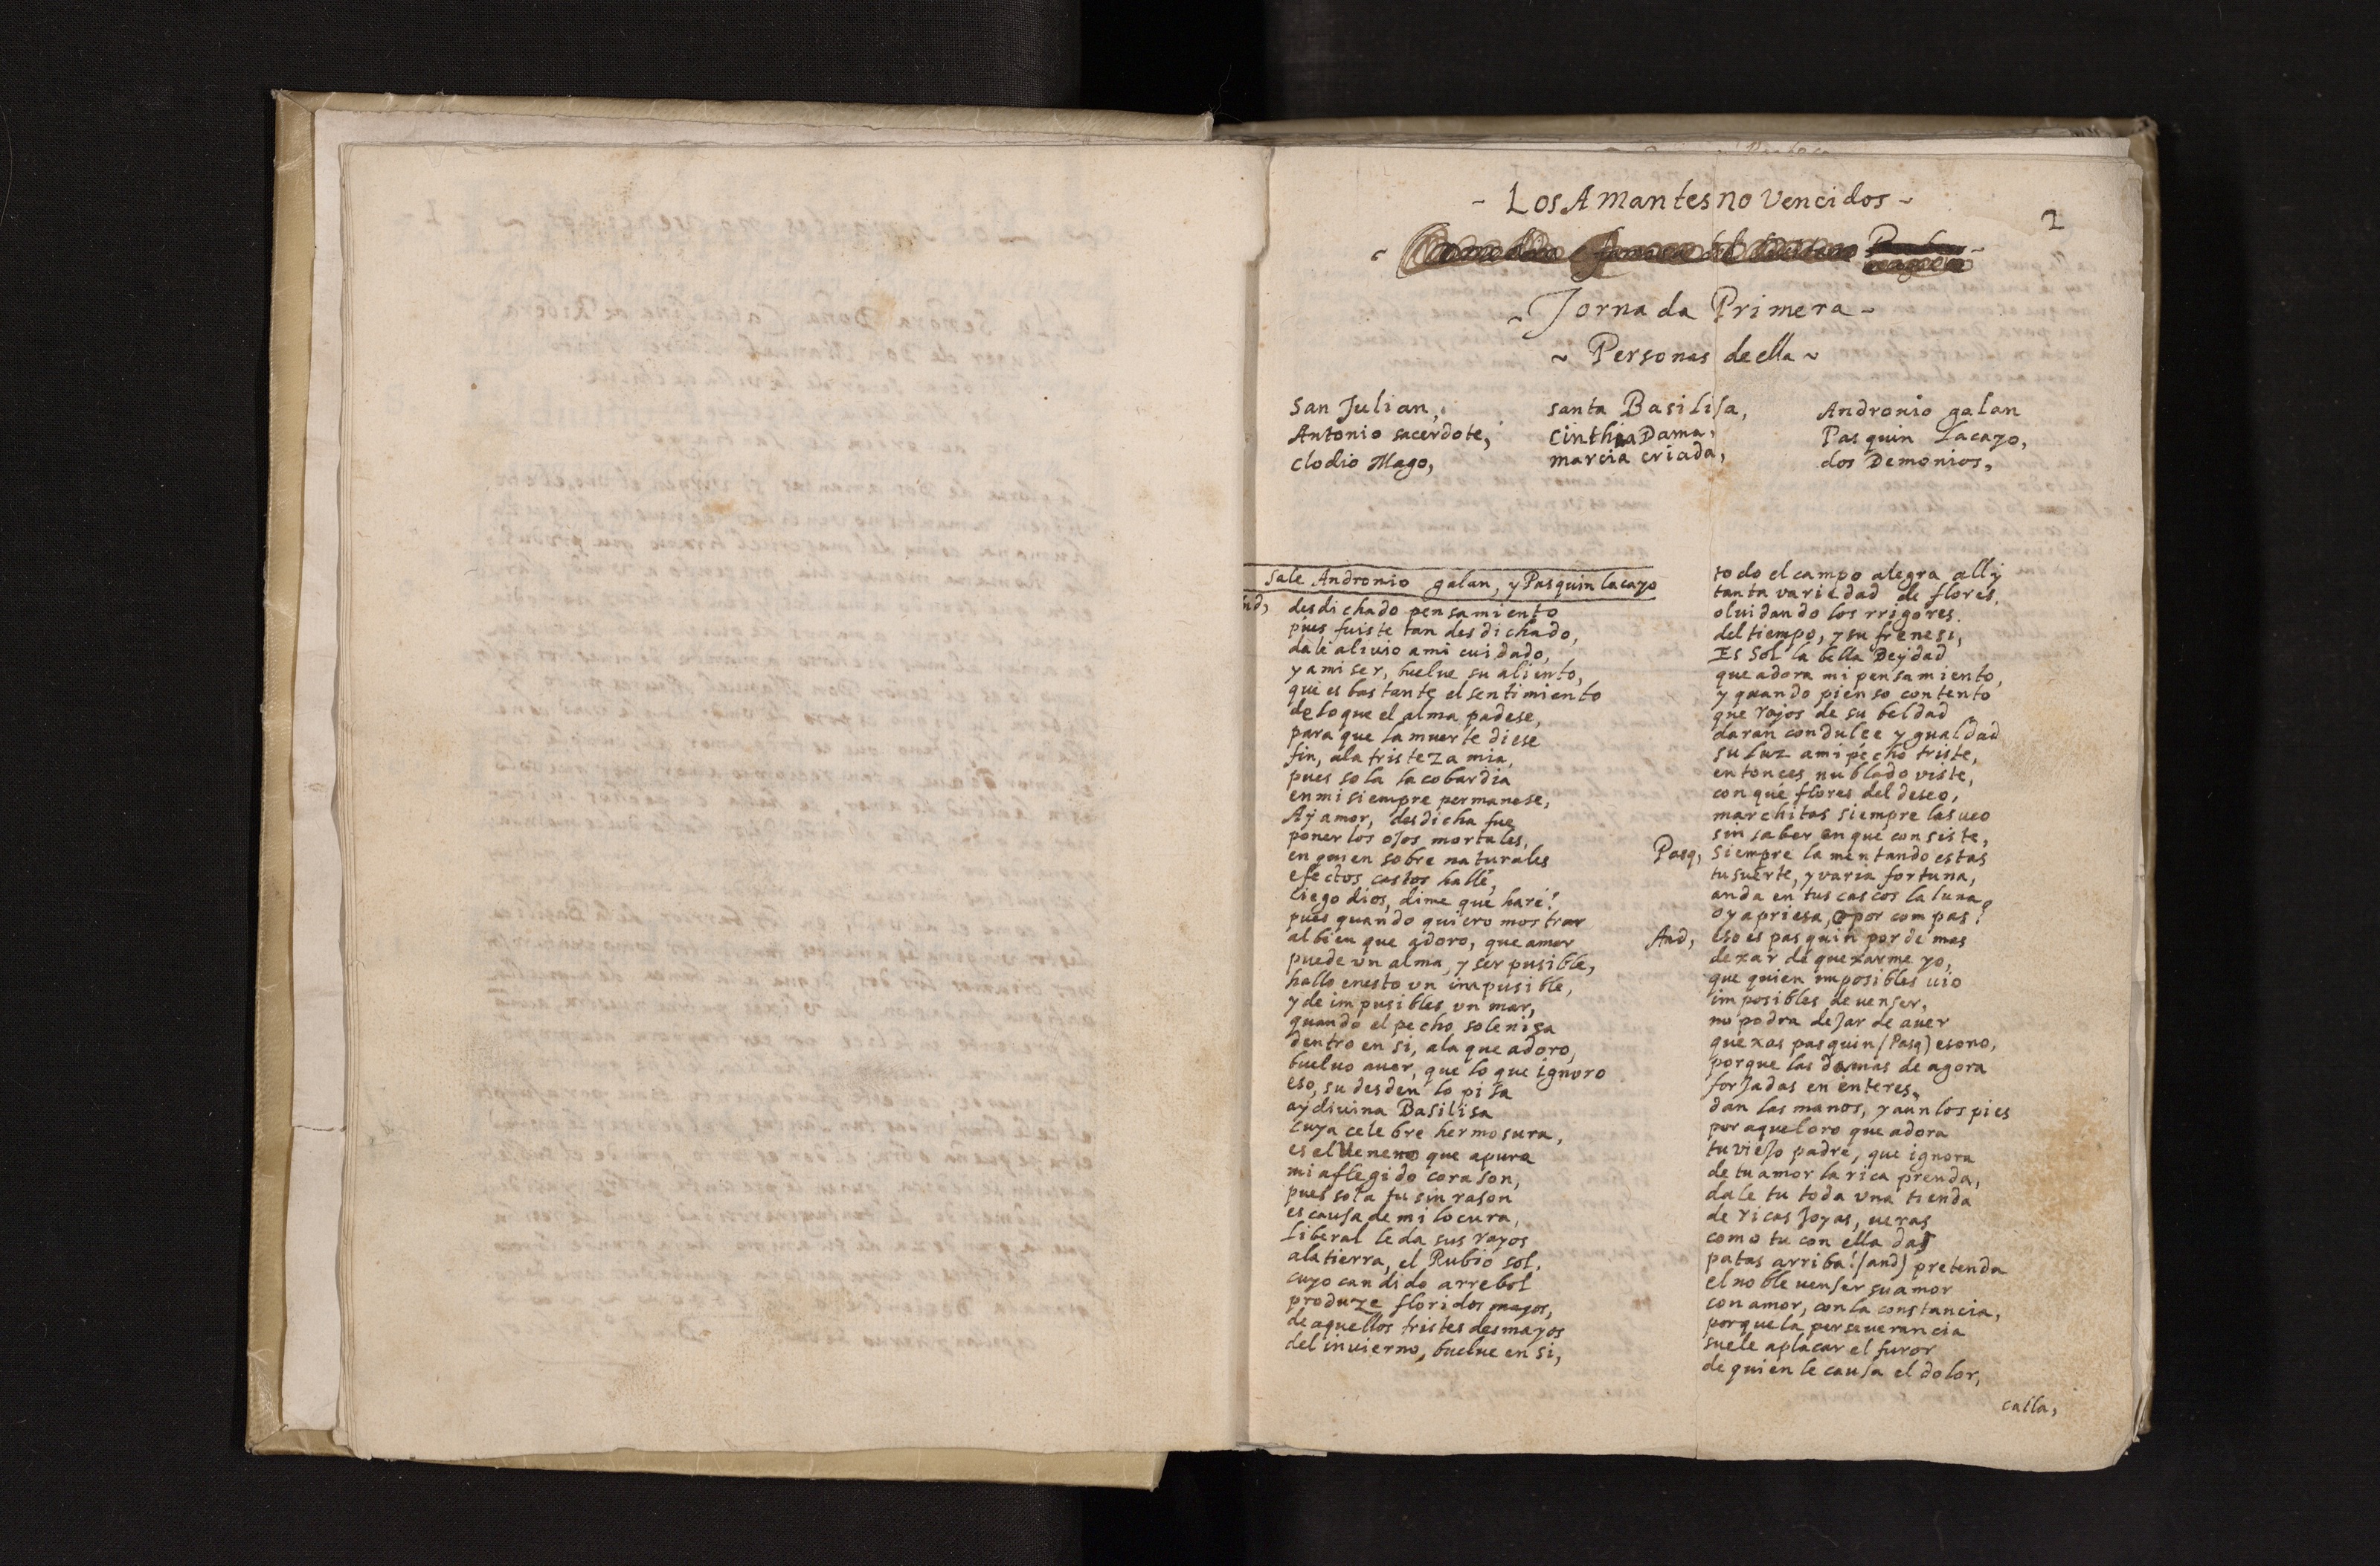 - Los Amantes no Vencidos -
2
- Jornada Primera -
~ Personas de ella ~
San Julian,
Antonio sacerdote,
Clodio Mago,
santa Basilisa,
Cinthia Dama,
marcia criada,
Andronio galan
Pasquin lacayo,
dos Demonios,
Sale Andronio galan, y Pasquin lacayo
And, desdichado pensamiento
pues fuiste tan desdichado,
dale aliuio a mi cuidado,
y a mi ser, buelue su aliento,
que es bastante el sentimiento
de lo que el alma padese,
para que la muerte diese
fin, ala tristeza mia,
pues sola la cobardia
en mi siempre permanese,
Ay amor, desdicha fue
poner los ojos mortales,
en quien sobre naturales
efectos castos hallé,
ciego dios, dime que haré?
pues quando quiero mostrar
al bien que adoro, que amar
puede vn alma, y ser pusible,
hallo en esto vn inpusible,
y de impusibles vn mar,
quando el pecho solenisa
dentro en si, ala que adoro,
bueluo auer, que lo que ignoro
eso, su desden lo pisa
ay diuina Basilisa
cuya celebre hermosura,
es el Veneno que apura
mi aflegido corason,
pues sola tu sin rason
es causa de mi locura,
Liberal le da sus rayos
ala tierra, el Rubio sol,
cuyo candido arrebol
produze floridos mayos,
de aquellos tristes desmayos
del inuierno, buelue en si,
todo el campo alegra alli
tanta variedad de flores,
oluidando los rrigores
del tiempo, y su frenesi,
Es Sol la bella Deydad
que adora mi pensamiento,
y quando pienso contento
que rayos de su beldad
daran con dulce ygualdad
su luz a mi pecho triste,
entonces nublado viste,
con que flores del deseo,
marchitas siempre las ueo
sin saber en que consiste,
Pasq, Siempre lamentando estas
tu suerte, y varia fortuna,
anda en tus cascos la luna
oy apriesa, o por compas?
And, Eso es pasquin por de mas
dexar de quexarme yo,
que quien imposibles uio
imposibles de uenser,
no podra dejar de auer
quexas pasquin (Pasq) eso no,
porque las damas de agora
forjadas en enteres,
dan las manos, y aun los pies
por aquel oro que adora
tu viejo padre, que ignora
de tu amor la rica prenda,
dale tu toda vna tienda
de ricas Joyas, ueras
como tu con ella das
patas arriba! (and) pretenda
el noble uenser su amor
con amor, con la constancia,
porque la perseuerancia
suele aplacar el furor
de quien le causa el dolor,
calla,